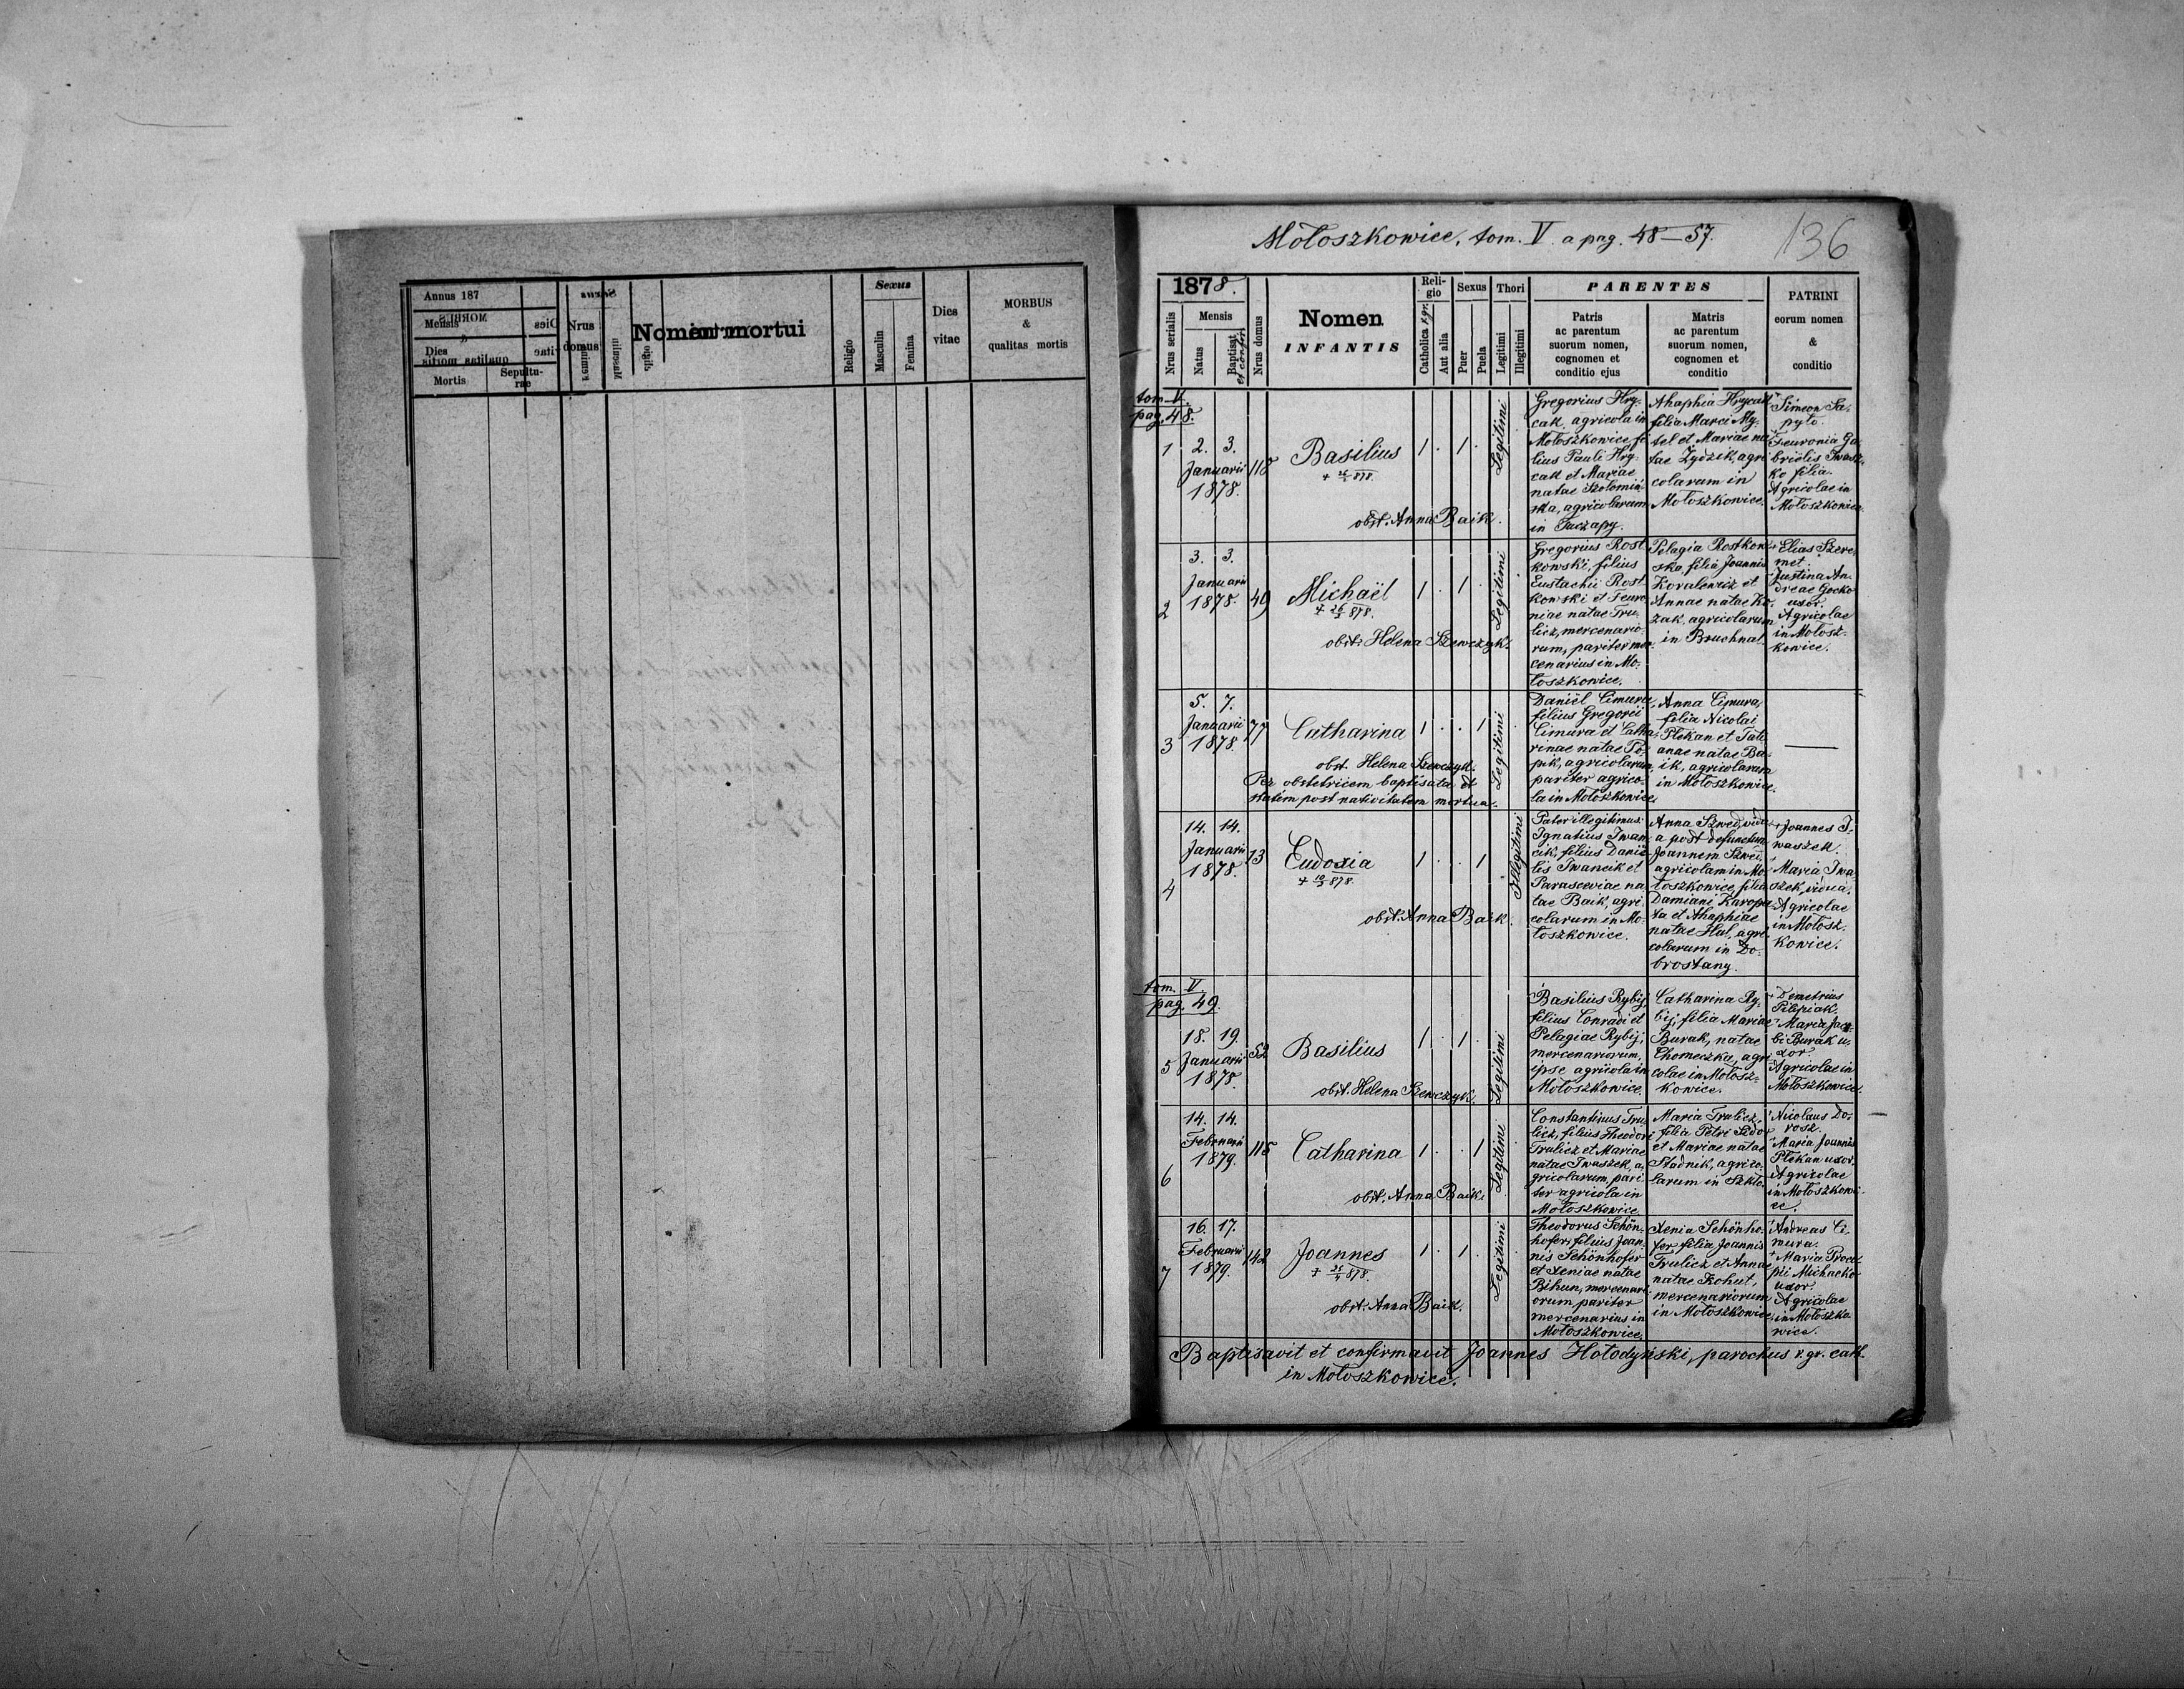 Annus 187
Mensis
Dies
Mortis
Sepultu-
rae
Nrus
domus
Nomen mortui
Religio
Sexus
Masculin
Femina
Dies
vitae
MORBUS
&
qualitas mortis
Mołoszkowice, tom. V. a pag. 48–57.
136
1878.
Nrus serialis
Mensis
Natus
Baptisat.
et confir.
Nrus domus
Nomen
INFANTIS
Reli-
gio
Catholica r. gr.
Aut alia
Sexus
Puer
Puela
Thori
Legitimi
Illegitimi
PARENTES
Patris
ac parentum
suorum nomen,
cognomeu et
conditio ejus
Matris
ac parentum
suorum nomen,
cognomen et
conditio
PATRINI
eorum nomen
&
conditio
tom. V.
pag. 48.
1
2. 3.
Januarii
1878.
Basilius
1 . 1 .
Legitimi
obst. Anna Baik.
Gregorius Hry-
cak, agricola in
Mołoszkowice, fi-
lius Pauli Hry-
cak et Mariae
natae Szołomiń-
ska, agricolarum
in Tuczapy.
Ahaphia Hrycak
filia Marci My-
tel et Mariae na-
tae Zydzik, agri-
colarum in
Mołoszkowice.
Simeon Sa-
pyło.
Feuronia Ga-
brielis Iwasz-
ko filia.
Agricolae in
Mołoszkowice.
2
3. 3.
Januarii
1878.
49
Michaël
+ 26/3 878.
1 . 1 .
Legitimi
obst. Helena Szewczyk.
Gregorius Rost-
kowski, filius
Eustachii Rost-
kowski et Feuro-
niae natae Tru-
licz, mercenario-
rum, pariter mer-
cenarius in Mo-
łoszkowice.
Pelagia Rostkow-
ska, filia Joannis
Kovalewicz et
Annae natae Ko-
zak, agricolarum
in Bruchnal.
Elias Szere-
met.
Justina An-
dreae Gocko
uxor.
Agricolae
in Mołosz-
kowice.
3
5. 7.
Januarii
1878.
77
Catharina
1 . . 1
Legitimi
obst. Helena Szewczyk.
Per obstetricem baptisata et
statim post nativitatem mortua.
Daniël Cimura,
filius Gregorii
Cimura et Catha-
rinae natae To-
pik, agricolarum
pariter agrico-
la in Mołoszkowice.
Anna Cimura,
filia Nicolai
Płekan et Tati-
anae natae Ba-
ik, agricolarum
in Mołoszkowice.
4
14. 14.
Januarii
1878.
13
Eudoxia
+ 10/3 878.
1 . . 1
Illegitimi
obst. Anna Baik.
Pater illegitimus:
Ignatius Iwan-
cik, filius Danië-
lis Iwancik et
Parasceviae na-
tae Baik, agri-
colarum in Mo-
łoszkowice.
Anna Szwed, vidu-
a post defunctum
Joannem Szwed,
agricolam in Mo-
łoszkowice, filia
Damiani Karopa-
ta et Ahaphiae
natae Hal, agri-
colarum in Do-
brostany.
Joannes I-
waszek.
Maria Iwa-
szek, vidua.
Agricolae
in Mołosz-
kowice.
tom. V.
pag. 49.
5
18. 19.
Januarii
1878.
52
Basilius
1 . 1 .
Legitimi
obst. Helena Szewczyk.
Basilius Rybij,
filius Conradi et
Pelagiae Rybij,
mercenariorum,
ipse agricola in
Mołoszkowice.
Catharina Ry-
bij, filia Mariae
Burak, natae
Chomeczka, agri-
colae in Mołosz-
kowice.
Demetrius
Pilipiak.
Maria Jaco-
bi Burak u-
xor.
Agricolae in
Mołoszkowice.
6
14. 14.
Februarii
1879.
115
Catharina
1 . . 1
Legitimi
obst. Anna Baik.
Constantinus Tru-
licz, filius Theodori
Trulicz et Mariae
natae Iwaszek, a-
gricolarum, pari-
ter agricola in
Mołoszkowice.
Maria Trulicz,
filia Petri Sidor
et Mariae natae
Stadnik, agrico-
larum in Szkło.
Nicolaus Do-
rosz.
Maria Joannis
Płekan uxor.
Agricolae
in Mołoszkowi-
ce.
7
16. 17.
Februarii
1879.
142
Joannes
1 . 1 .
Legitimi
obst. Anna Baik.
Theodorus Schön-
hofer, filius Joan-
nis Schönhofer
et Xeniae natae
Bihun, mercenari-
orum, pariter
mercenarius in
Mołoszkowice.
Xenia Schönho-
fer, filia Joannis
Trulicz et Annae
natae Kohut,
mercenariorum
in Mołoszkowice.
Andreas Ci-
mura.
Maria Proco-
pii Michaeko
uxor.
Agricolae
in Mołoszko-
wice.
Baptisavit et confirmavit Joannes Hołodyński, parochus r. gr. cath.
in Mołoszkowice.